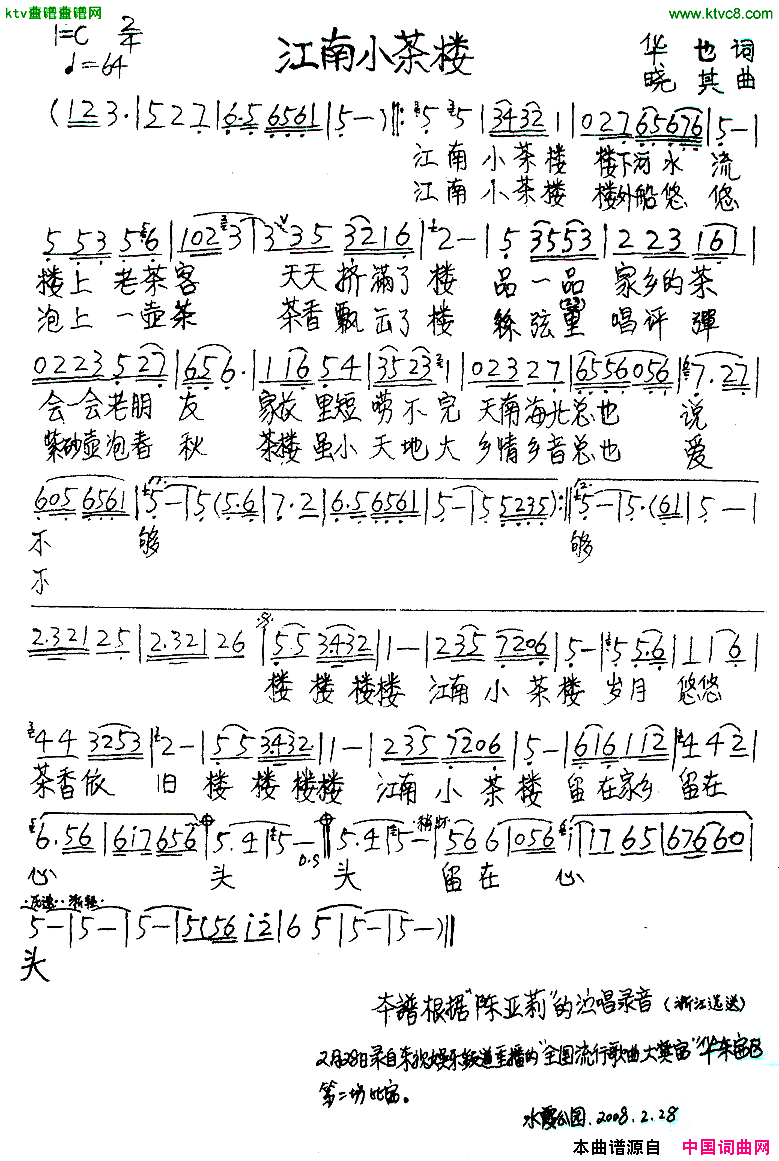 ktv查谱查谱网
www.ktvc8.com
1=C 2/4
♩=64
江南小茶楼
华也 词
晓其 曲
(123·|527|6·5 6561|5—)‖:5 5|3432 1|027 65676|5—|
江南 小茶楼 楼下河水 流
江南 小茶楼 楼外船悠 悠
5 53 56|1023|3 35 3216|2—|5 3553|223 161|
楼上 老茶客 天天 挤满了 楼 品一品 家乡的茶
泡上 一壶茶 茶香 飘云了 楼 丝弦里 唱评弹
0223 527|656·|116 54|3523 1|023 27|6556056|7·27|
会一会老朋 友 家故里短 唠不完 天南海北总也 说
紫砂壶泡春 秋 茶楼虽小 天地大 乡情乡音总也 爱
605 6561|5—|5(5·6|7·2|6·5 6561|5—|5 5235):‖5—|5·(61|5—|
不 够 够
不
2·321 25|2·321 26|55 3·432|1—|235 7206|5—|5 5·6|11 6|
楼 楼 楼楼 江南 小 茶楼 岁月 悠悠
44 3253|2—|55 3·432|1—|235 7206|5—|616 112|442|
茶香依 旧 楼 楼 楼楼 江南 小 茶楼 留在家乡 留在
6·56|617656|5·4|5—‖5·4|5—|566|056|1 17 65|676660|
D.S 稍慢
心 头 头 留在 心
5—|5—|5—|5156 12|65|5—|5—)‖
头
本谱根据“陈亚莉”的演唱录音(浙江选送)
2月28日录自东视娱乐频道直播的“全国流行歌曲大奖赛”华东赛区
第二场比赛。
水霞公园.2008.2.28
本曲谱源自 中国词曲网